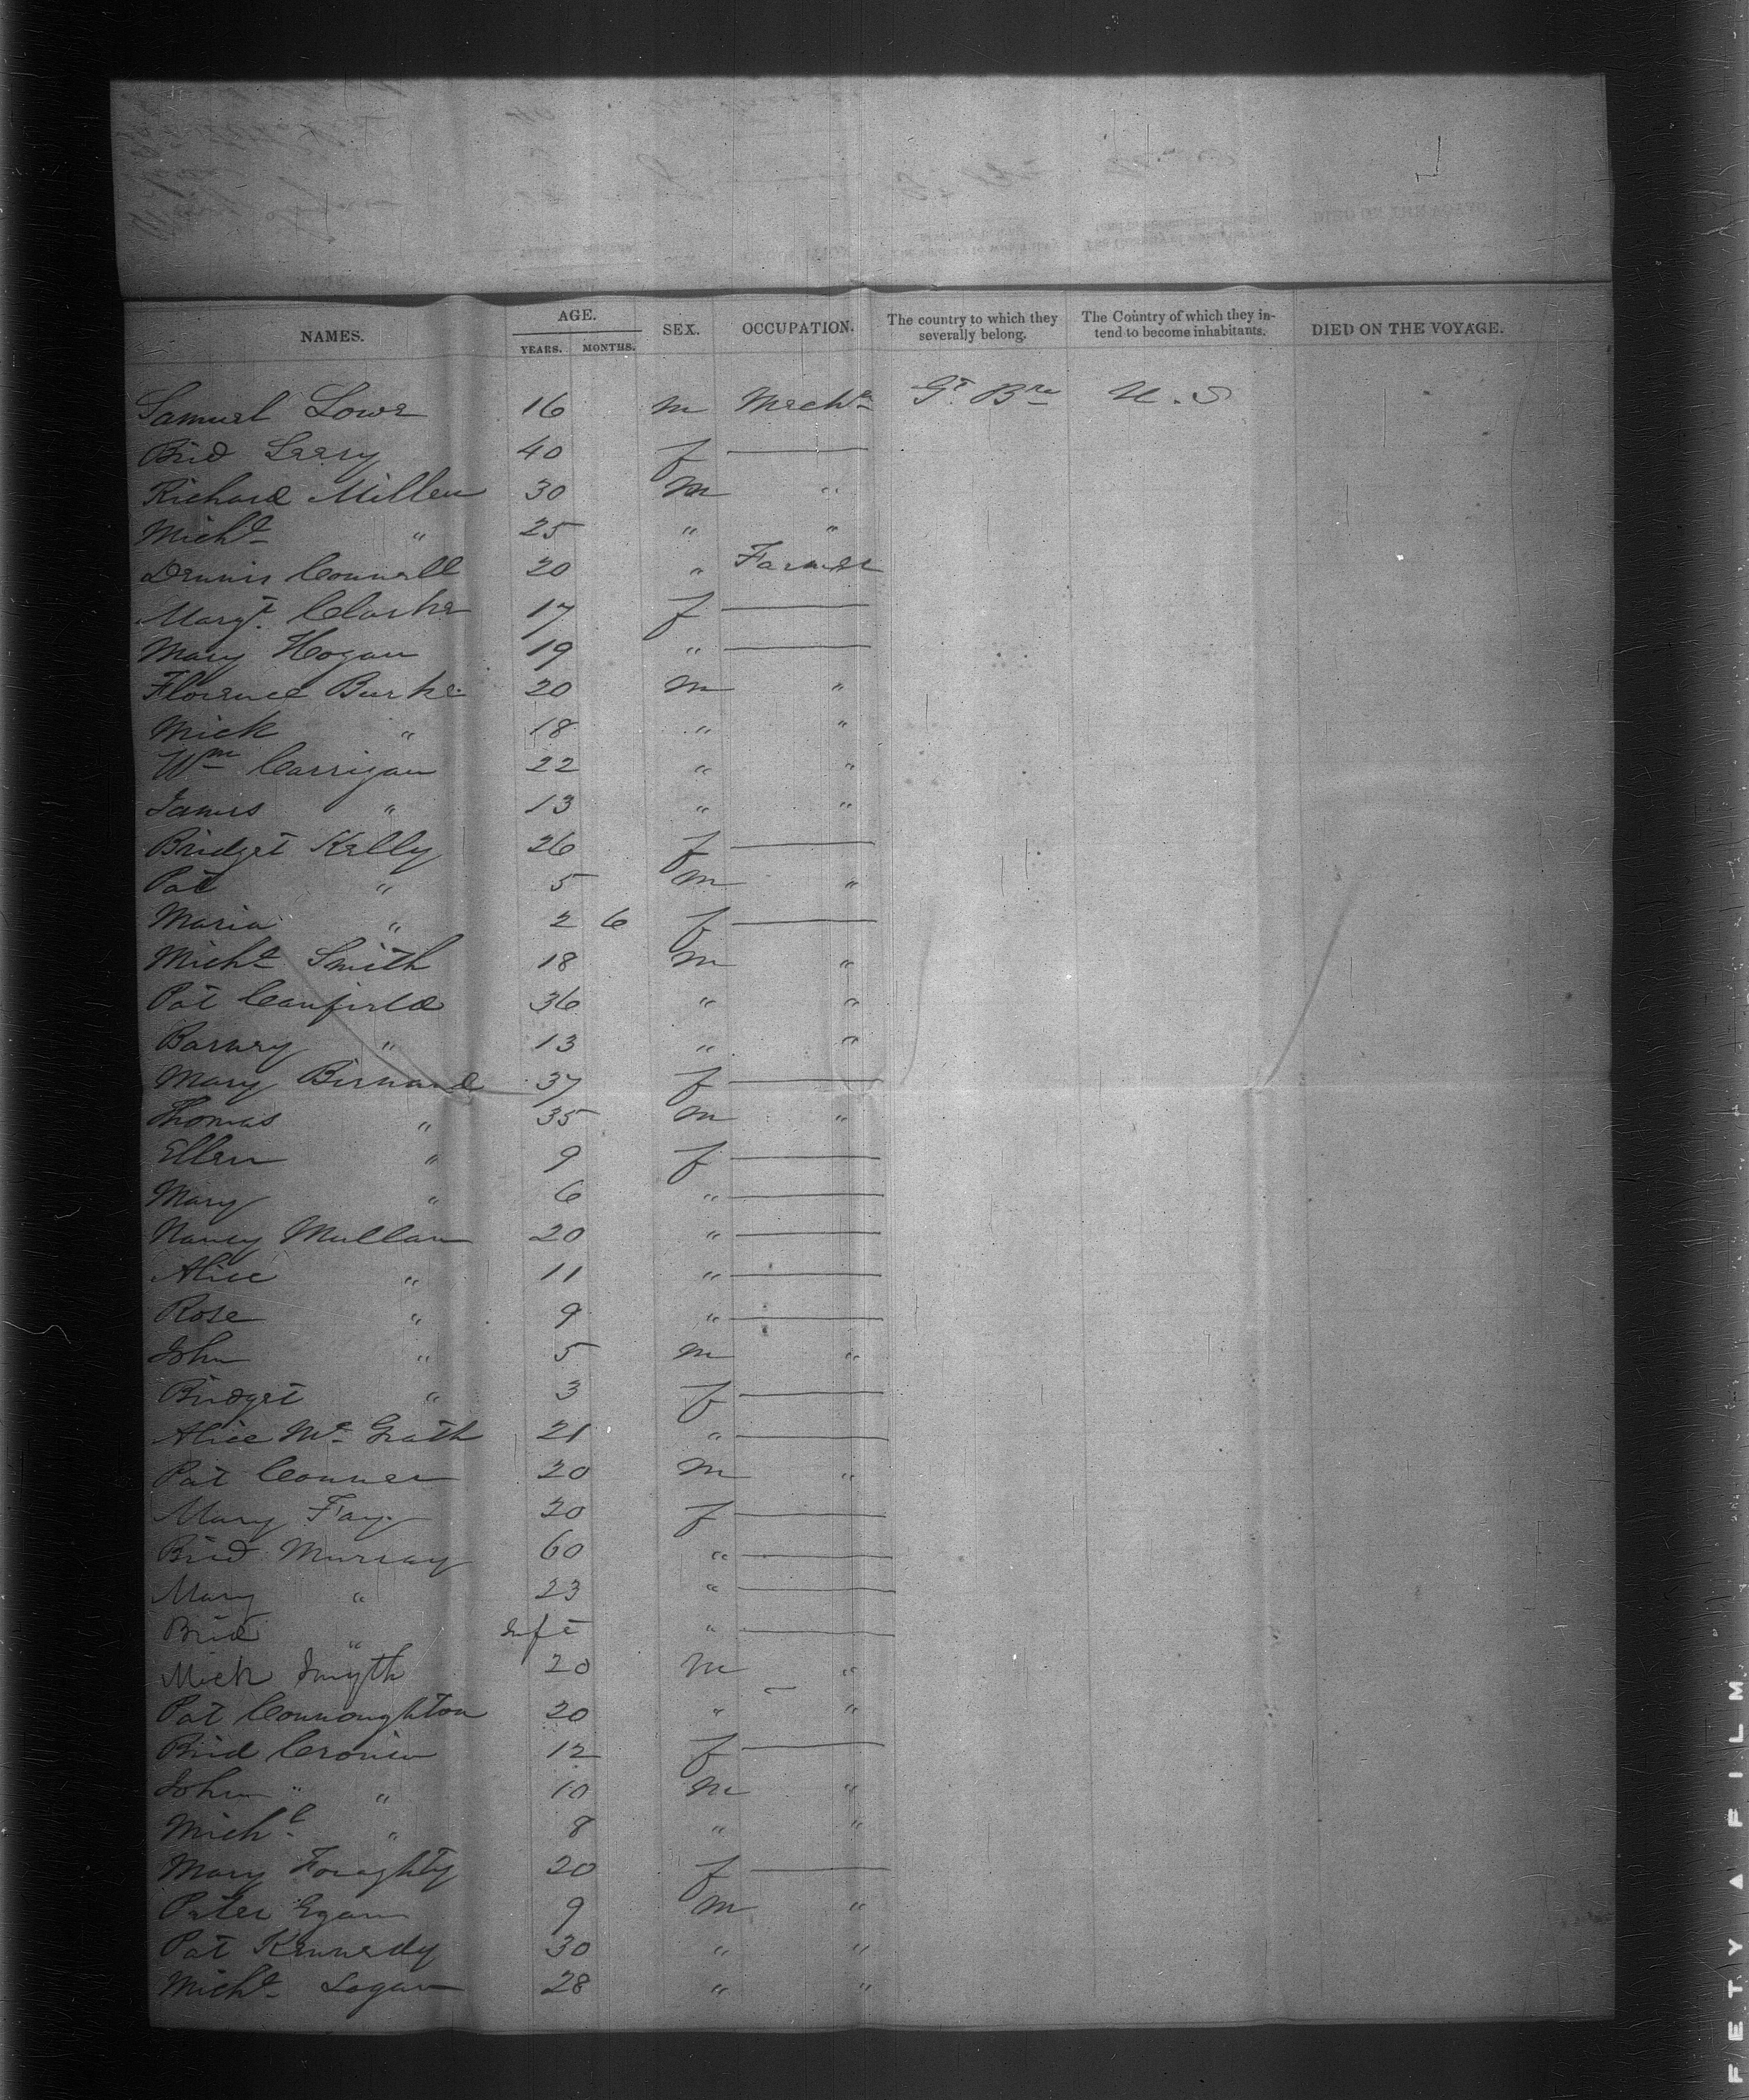 NAMES. AGE. YEARS. MONTHS. SEX. OCCUPATION. The country to which they severally belong. The Country of which they intend to become inhabitants. DIED ON THE VOYAGE.
Samuel Lowe 16 m Mechc Gt Brn U.S
Brid Leary 40 f —
Richard Miller 30 m "
Michl " 25 " "
Dennis Connell 20 " Farmer
Margt. Clarke 17 f —
Mary Hogan 19 " —
Florence Burke 20 m "
Mick " 18 " "
Wm Carrigan 22 " "
James " 13 " "
Bridget Kelly 26 f —
Pat " 5 m "
Maria " 2 6 f —
Michl Smith 18 m "
Pat Canfield 36 " "
Barney " 13 " "
Mary Birnard 37 f —
Thomas " 35 m "
Ellen " 9 f —
Mary " 6 " —
Nancy Mullan 20 " —
Alice " 11 " —
Rose " 9 " —
John " 5 m "
Bridget " 3 f —
Alice Mc Grath 21 " —
Pat Conner 20 m "
Mary Fay 20 f —
Brid Murray 60 " —
Mary " 23 " —
Brid " Inft " —
Mick Smyth 20 m "
Pat Connoughton 20 " "
Brid Cronin 12 f —
John " " 10 m "
Michl " 8 " "
Mary Foughty 20 f —
Peter Egan 9 m "
Pat Kennedy 30 " "
Michl Logan 28 " "
FETY FILM